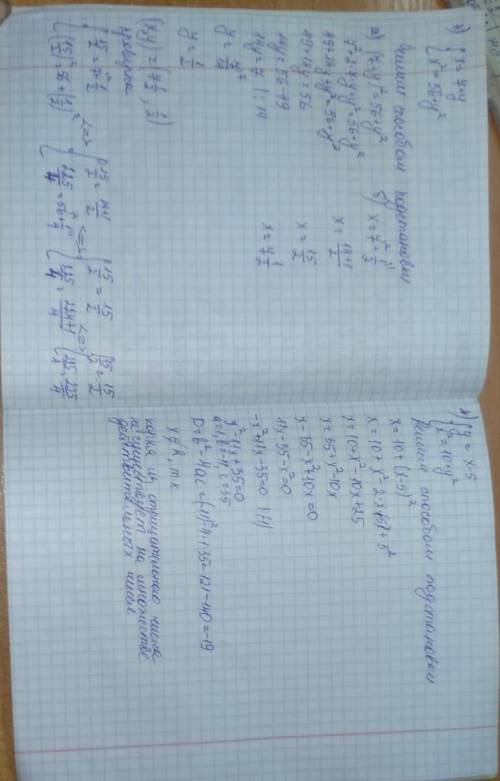 з) { x = 7 + y
x² = 56 + y²
Решим способом подстановки
а) (7+y)² = 56 + y²
7² + 2·7·y + y² = 56 + y²
49 + 14y + y² = 56 + y²
49 + 14y = 56
14y = 56 - 49
14y = 7 |: 14
y = 7/14
y = 1/2
б) x = 7 + 1/2
x = 14+1/2
x = 15/2
x = 7 1/2
(x;y) = (7 1/2; 1/2)
проверка
{ 15/2 = 7 + 1/2
(15/2)² = 56 + (1/2)² <=> { 15/2 = 14+1/2
225/4 = 56 + 1/4 <=> { 15/2 = 15/2
225/4 = 224+1/4 <=> { 15/2 = 15/2
225/4 = 225/4
{ y = x - 5
x = 10 + y²
Решим способом подстановки
x = 10 + (x-5)²
x = 10 + x² - 2·x·5 + 5²
x = 10 + x² - 10x + 25
x = 35 + x² - 10x
x - 35 - x² + 10x = 0
11x - 35 - x² = 0
-x² + 11x - 35 = 0 |(-1)
x² - 11x + 35 = 0
a=1, b=-11, c=35
D = b² - 4ac = (-11)² - 4·1·35 = 121 - 140 = -19
x ∉ R, т.к
корня из отрицательного числа
не существует на множестве
действительных чисел